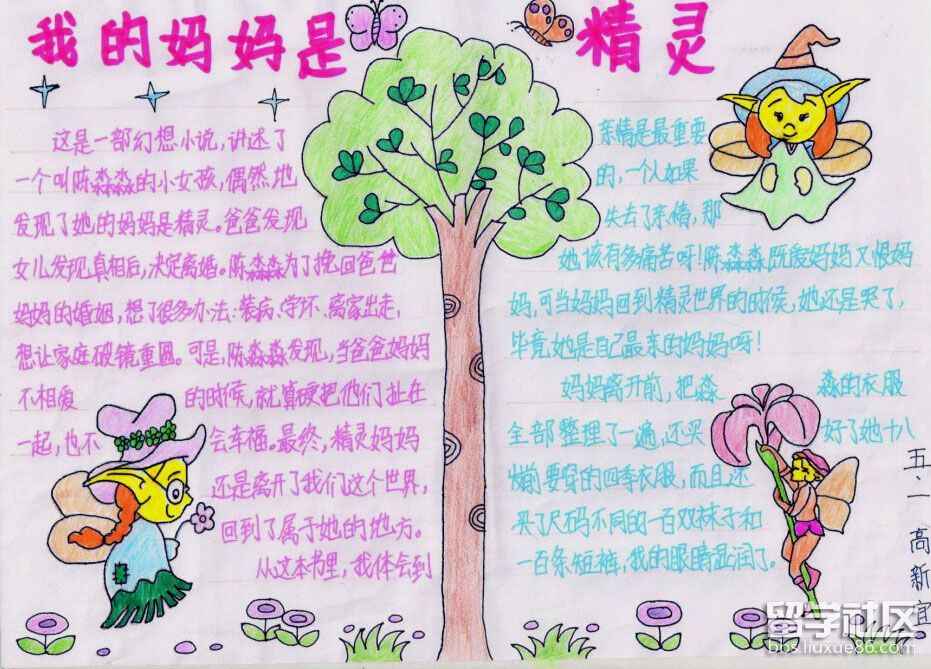 我的妈妈是精灵
这是一部幻想小说,讲述了
一个叫陈淼淼的小女孩,偶然地
发现了她的妈妈是精灵。爸爸发现
女儿发现真相后,决定离婚。陈淼淼为了挽回爸爸
妈妈的婚姻,想了很多办法:装病、学坏、离家出走,
想让家庭破镜重圆。可是,陈淼淼发现,当爸爸妈妈
不相爱的时候,就算硬把他们扯在
一起,也不会幸福。最终,精灵妈妈
还是离开了我们这个世界,
回到了属于她的地方。
从这本书里,我体会到
亲情是最重要
的,一个人如果
失去了亲情,那
她该有多痛苦呀!陈淼淼既爱妈妈又恨妈
妈,可当妈妈回到精灵世界的时候,她还是哭了,
毕竟她是自己最亲的妈妈呀!
妈妈离开前,把淼淼的衣服
全部整理了一遍,还买好了她十八
岁前要穿的四季衣服,而且还
买了尺码不同的一百双袜子和
一百条短裤,我的眼睛湿润了。
五.一高新宜
留学社区
bbs.liuxue86.com